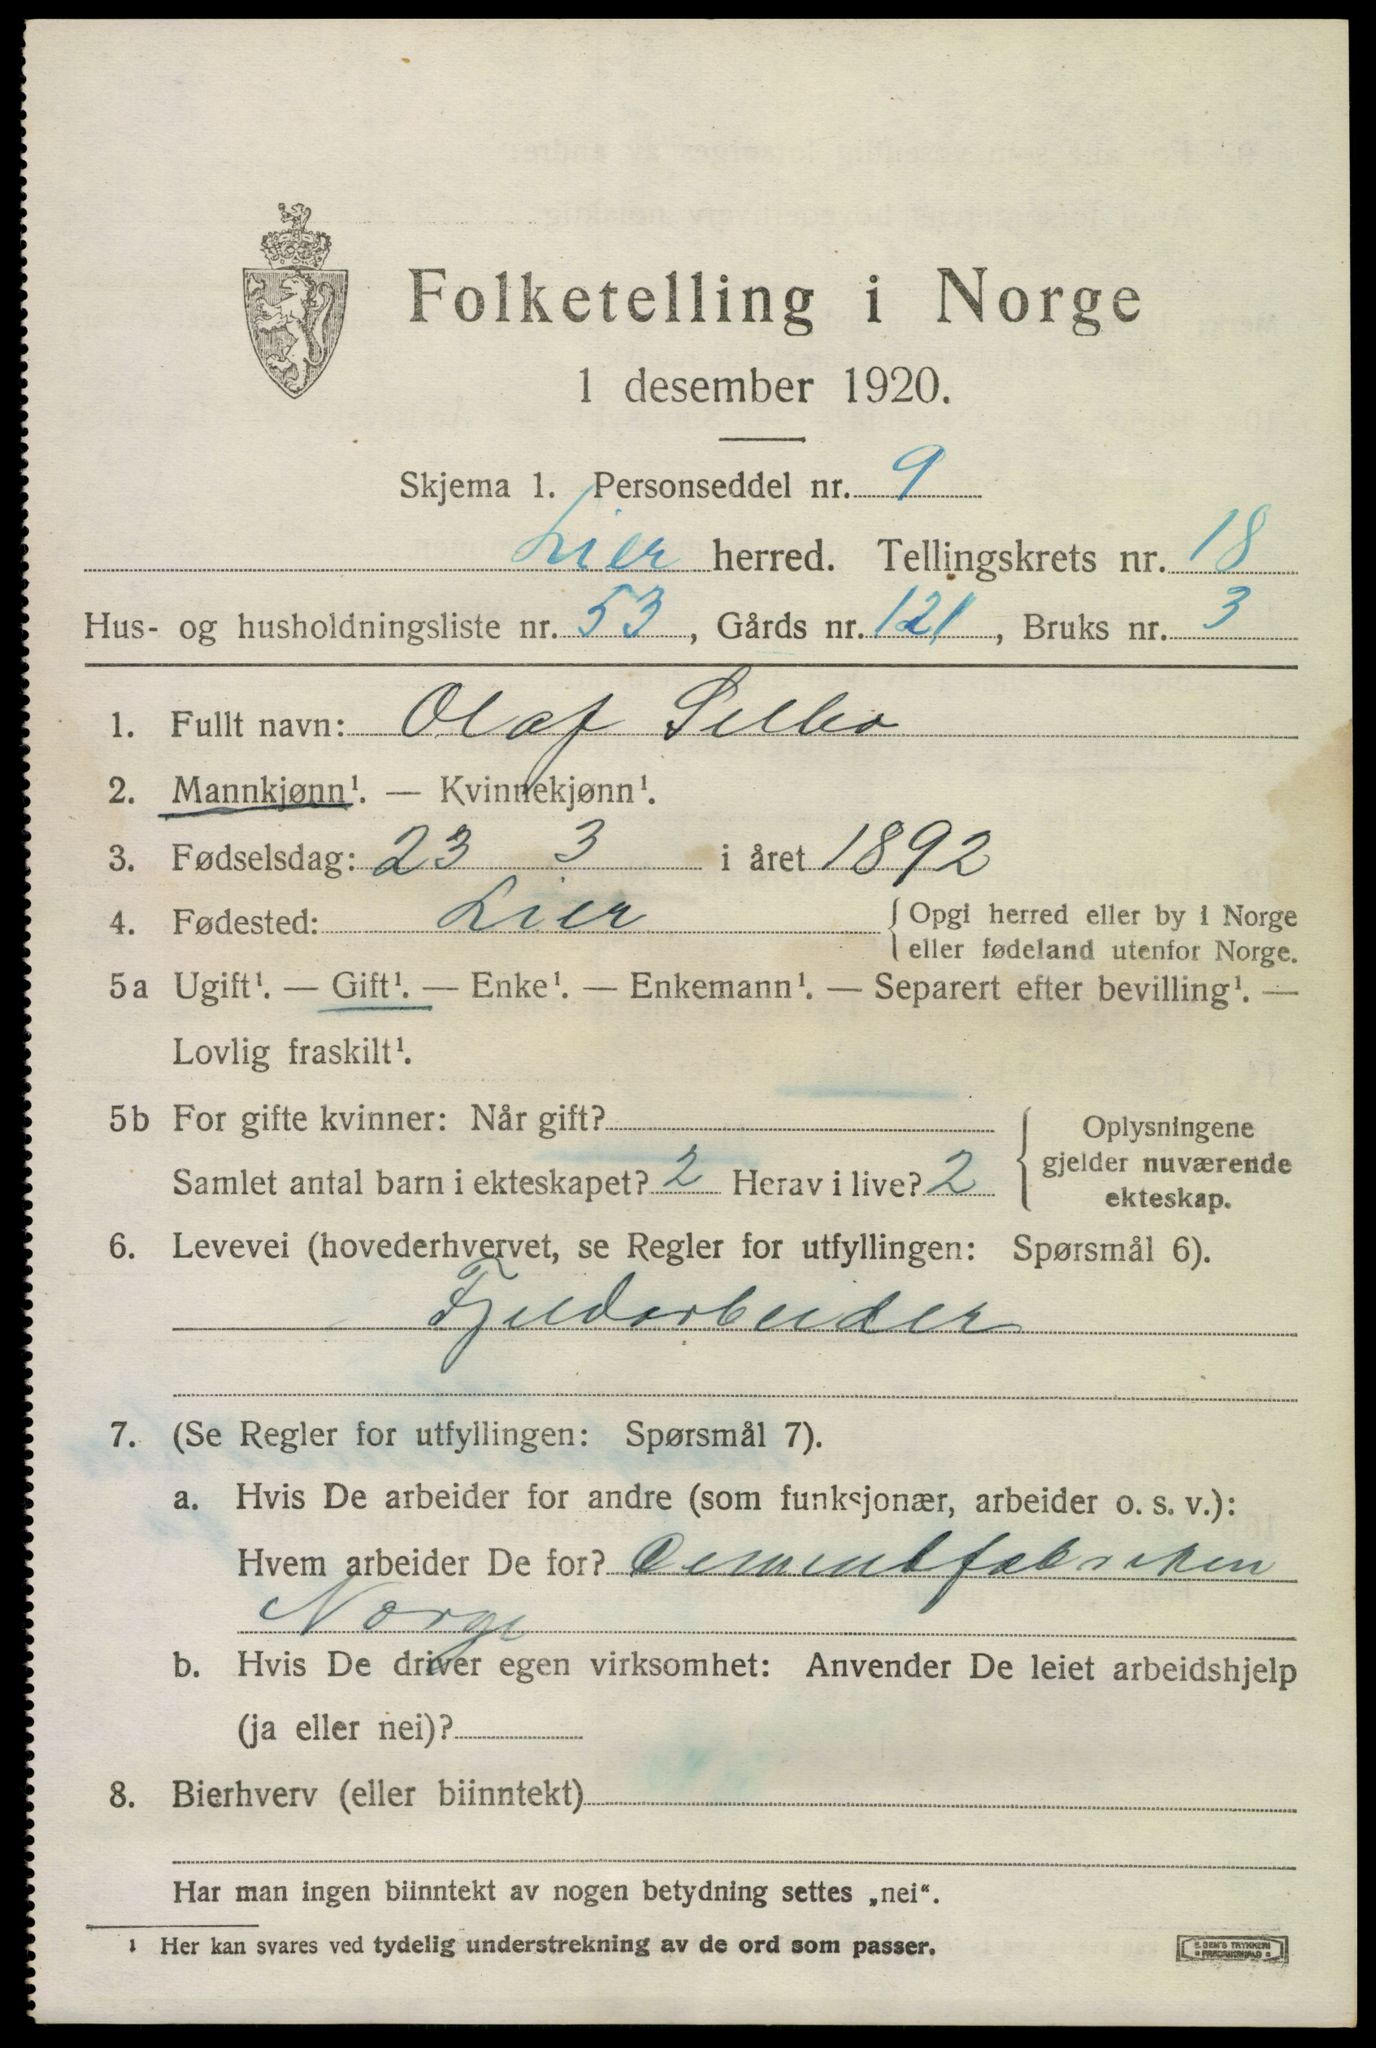 Folketelling i Norge
1 desember 1920.
Skjema 1. Personseddel nr. 9
Lier herred. Tellingskrets nr. 18
Hus- og husholdningsliste nr. 53, Gårds nr. 121, Bruks nr. 3
1. Fullt navn: Olaf
2. Mannkjønn¹. — Kvinnekjønn¹.
3. Fødselsdag: 23 3 i året 1892
4. Fødested: Lier { Opgi herred eller by i Norge
eller fødeland utenfor Norge.
5a Ugift¹. — Gift¹. — Enke¹. — Enkemann¹. — Separert efter bevilling¹. —
Lovlig fraskilt¹.
5b For gifte kvinner: Når gift?
Samlet antal barn i ekteskapet? 2 Herav i live? 2
Oplysningene
gjelder nuværende
ekteskap.
6. Levevei (hovederhvervet, se Regler for utfyllingen: Spørsmål 6).
Fjeldarbeider
7. (Se Regler for utfyllingen: Spørsmål 7).
a. Hvis De arbeider for andre (som funksjonær, arbeider o. s. v.):
Hvem arbeider De for? Cementfabriken
Norge
b. Hvis De driver egen virksomhet: Anvender De leiet arbeidshjelp
(ja eller nei)?
8. Bierhverv (eller biinntekt)
Har man ingen biinntekt av nogen betydning settes „nei“.
¹ Her kan svares ved tydelig understrekning av de ord som passer.